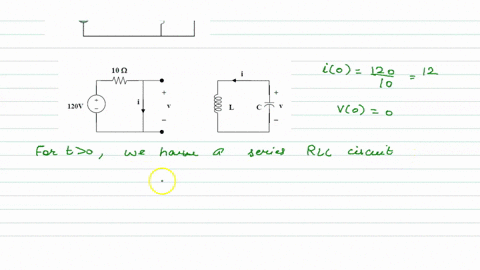 10 Ω
120V
i
+
v
−
i
L
C
+
v
−
i(0) = 120/10 = 12
v(0) = 0
For t>0, we have a series RLC circuit